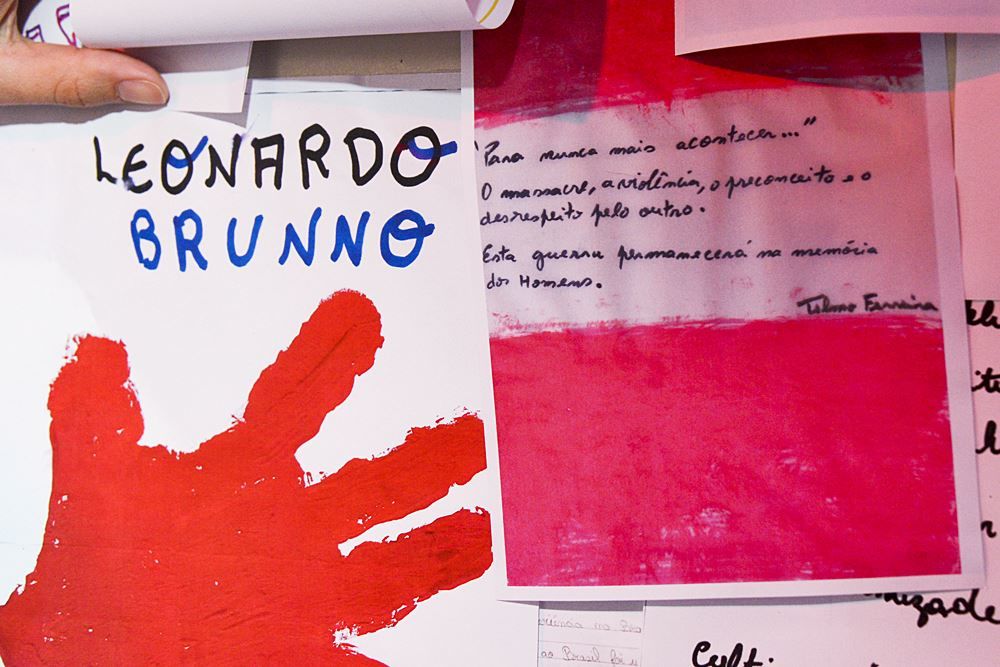 LEONARDO
BRUNNO
"Para nunca mais acontecer..."
O massacre, a violência, o preconceito e o
desrespeito pelo outro.
Esta guerra permanecerá na memória
dos Homens.
Telmo Ferreira
ao Brasil foi